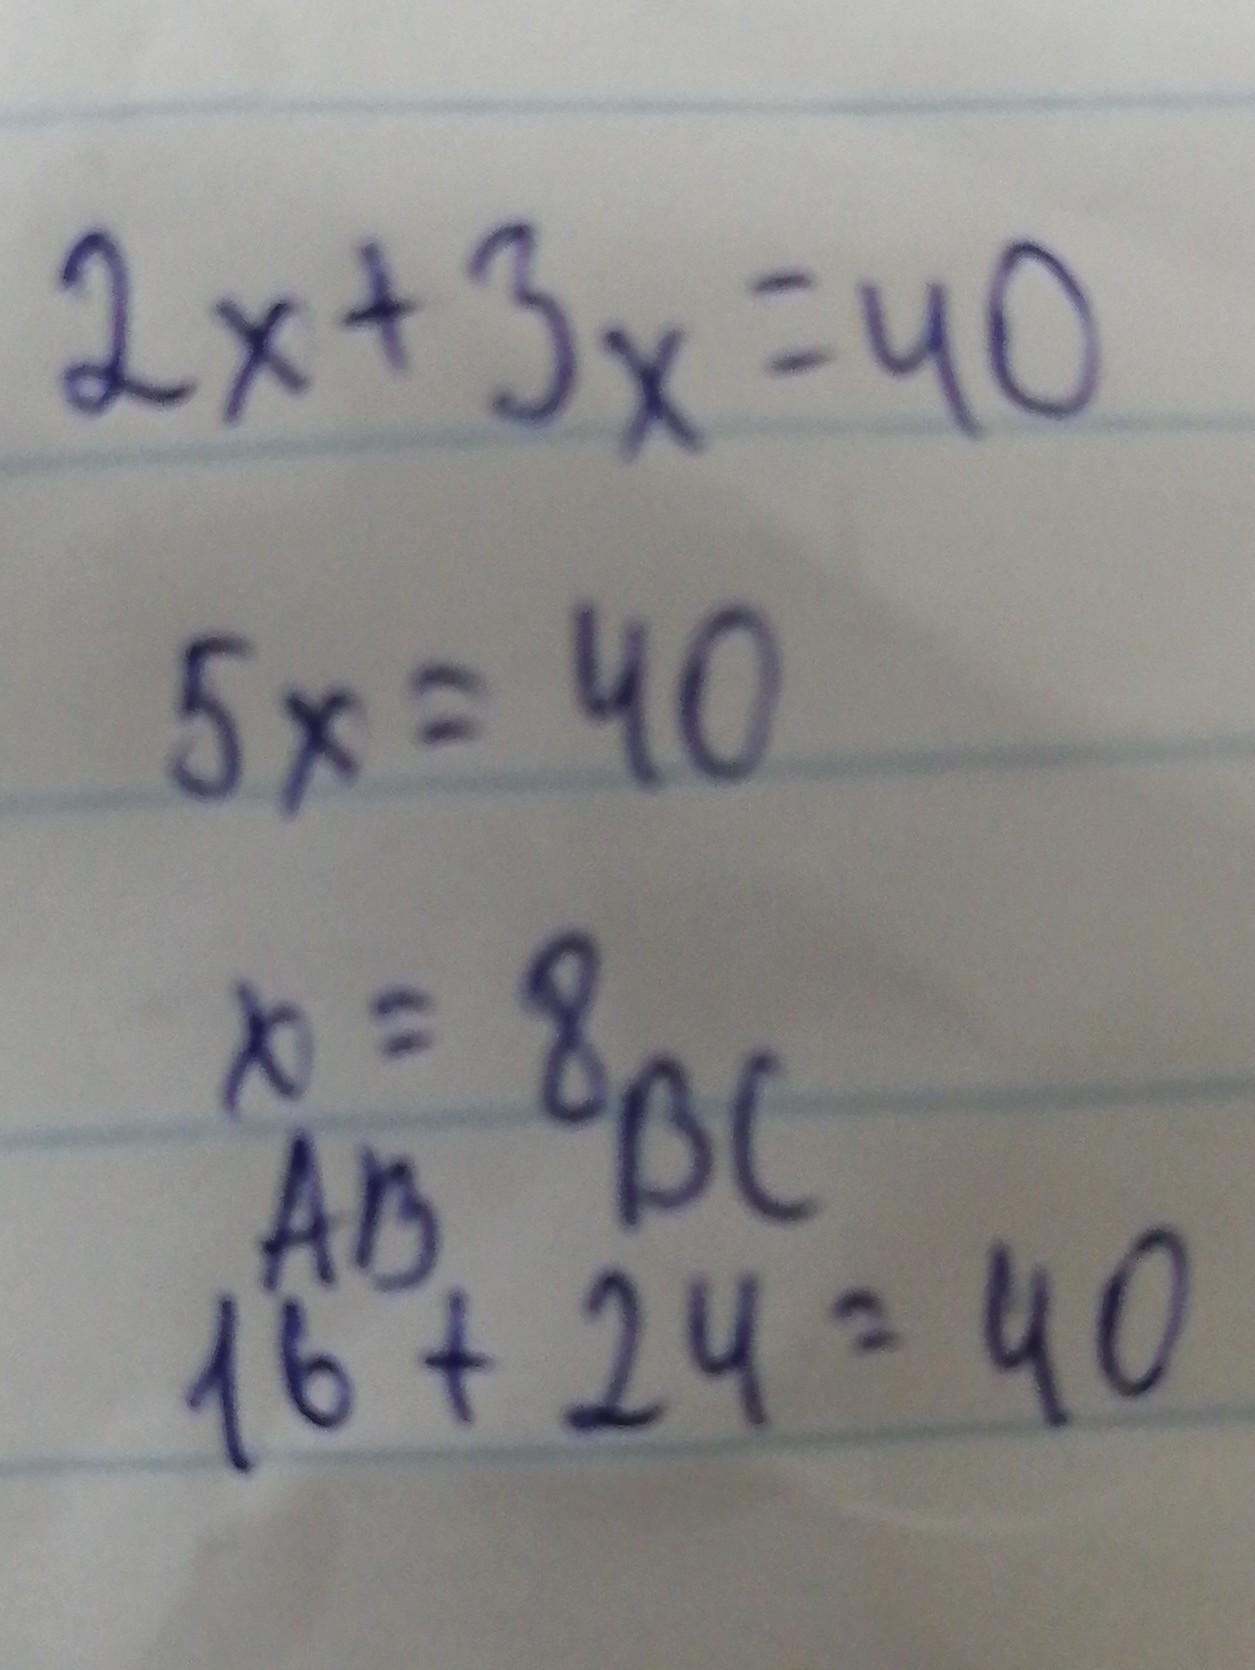 2x+3x=40
5x=40
x=8
AB BC
16+24=40